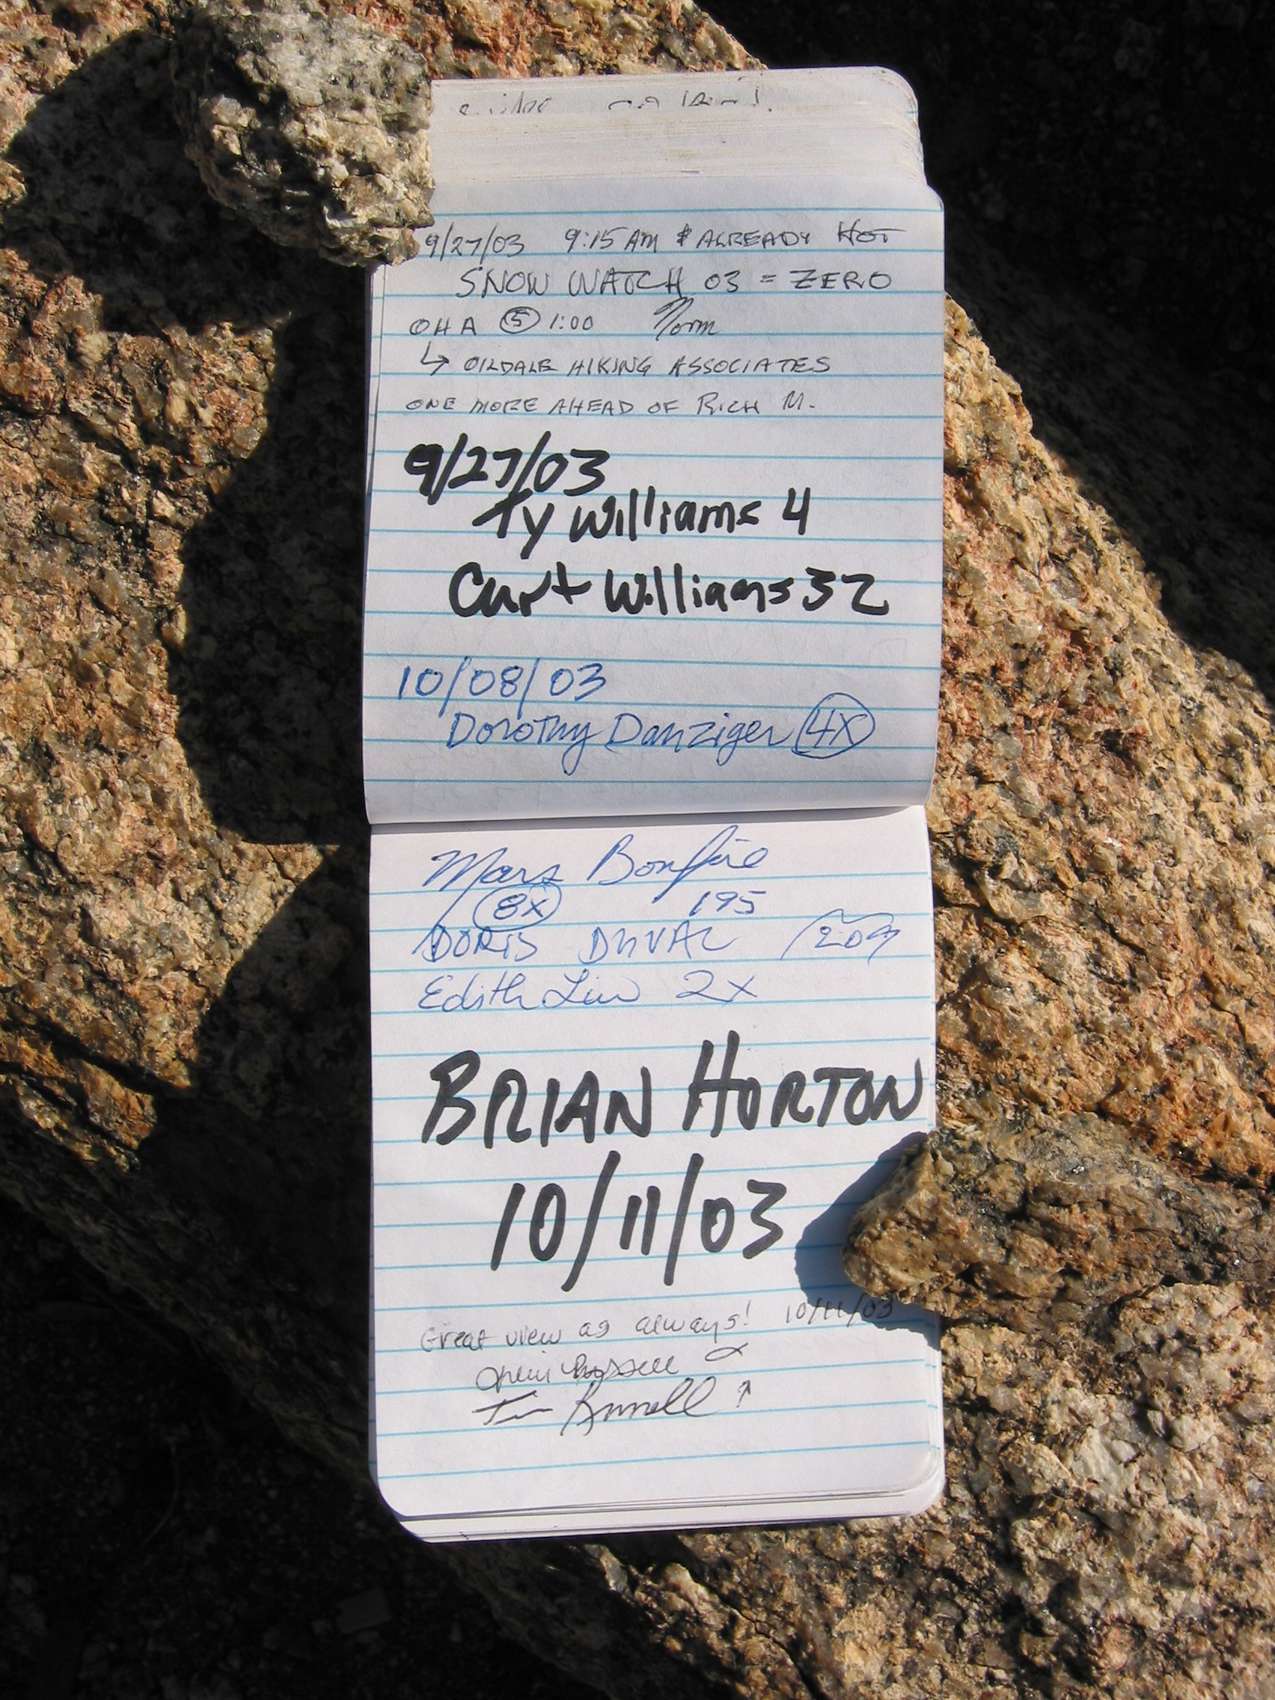 9/27/03 9:15 AM & ALREADY HOT
SNOW WATCH 03 = ZERO
OHA 5 1:00 Norm
↳ OILDALE HIKING ASSOCIATES
ONE MORE AHEAD OF RICH M.
9/27/03
Ty Williams 4
Curt Williams 32
10/08/03
Dorothy Danziger 4X
Mars Bonfire
8X 195
DORIS DUVAL
Edith Liu 2X
BRIAN HORTON
10/11/03
Great view as always! 10/11/03